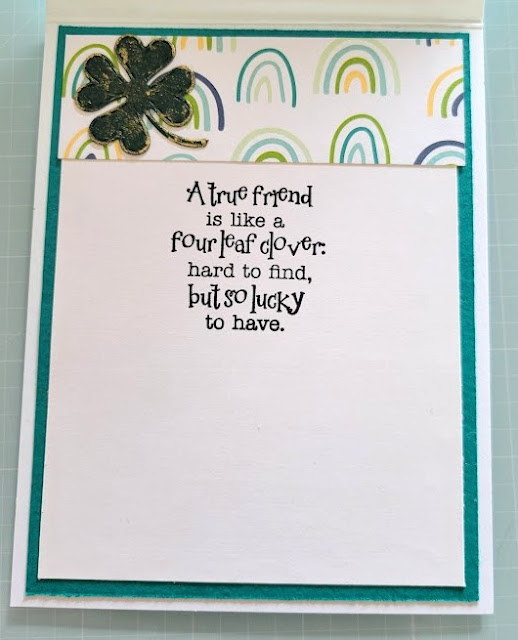 A true friend
is like a
four leaf clover:
hard to find,
but so lucky
to have.